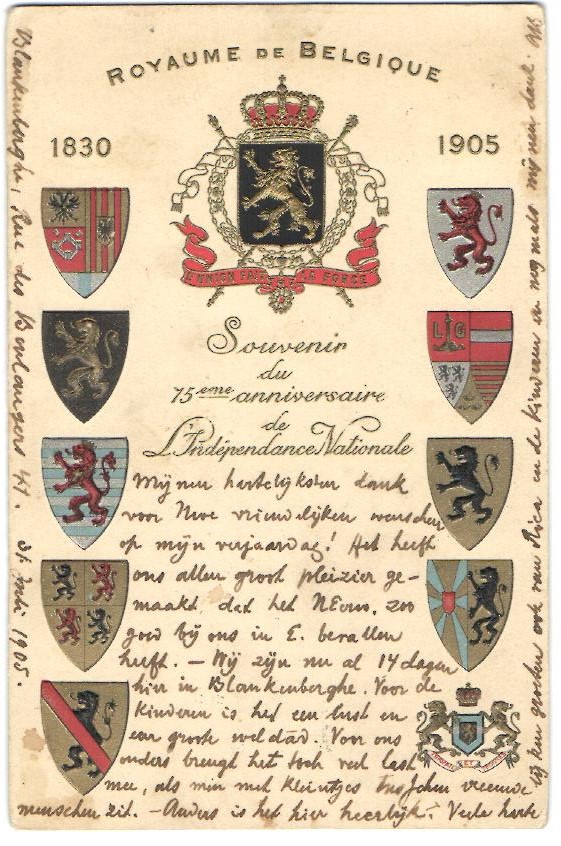 ROYAUME DE BELGIQUE
1830
1905
L'UNION FAIT LA FORCE
L G
Souvenir
du
75eme anniversaire
de
L'Indépendance Nationale
Mijnen hartelijksten dank
voor Uwe vriendelijken wenschen
op mijn verjaardag! Het heeft
ons allen groot pleizier ge-
maakt dat het UEwn. zoo
goed bij ons in E. bevallen
heeft. — Wij zijn nu al 14 dagen
hier in Blankenberghe. Voor de
kinderen is het een lust en
een groote weldad. Voor ons
ouders brengt het toch veel last
mee, als men met kleintjes tusschen vreemde
menschen zit. — Anders is het hier heerlijk. Veele harte
lijken groeten ook van Rica en de kinderen en nog mals mijnen dank.
Blankenberghe, Rue des Boulangers 41. 31 Juli 1905.